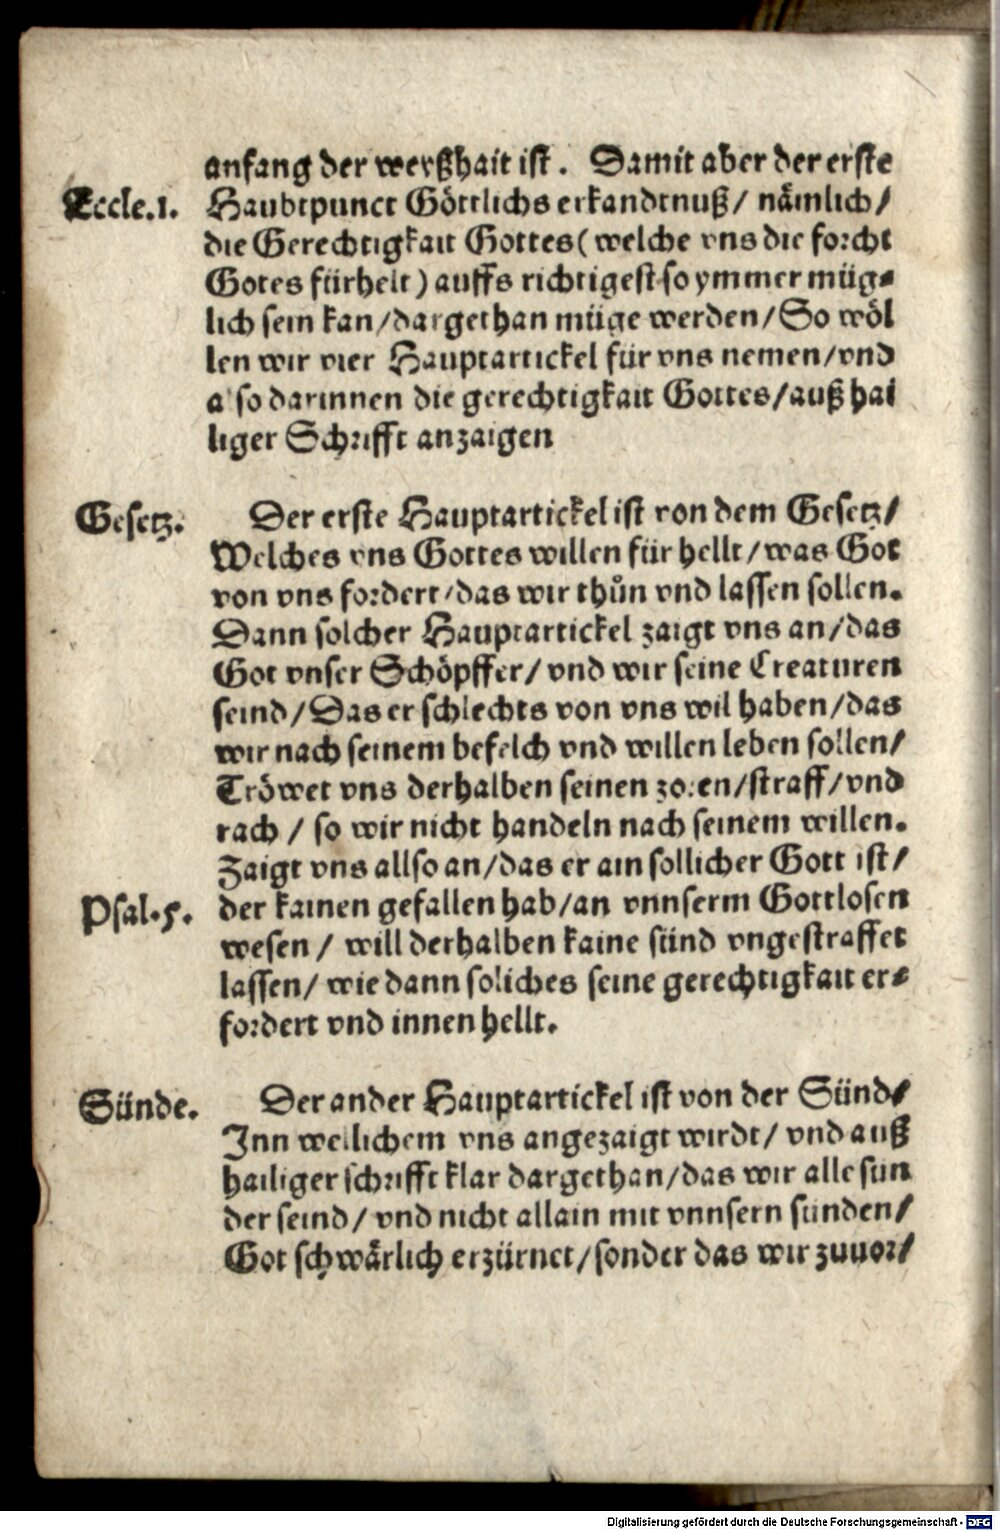 anfang der weyßhait ist. Damit aber der erste
Eccle.1. Haubtpunct Göttlichs erkandtnuß/ nämlich/
die Gerechtigkait Gottes (welche vns die forcht
Gotes fürhelt) auffs richtigest so ymmer müg⸗
lich sein kan/dargethan müge werden/So wöl
len wir vier Hauptartickel für vns nemen/vnd
also darinnen die gerechtigkait Gottes/auß hai
liger Schrifft anzaigen
Gesetz. Der erste Hauptartickel ist von dem Gesetz/
Welches vns Gottes willen für hellt/was Got
von vns fordert/das wir thůn vnd lassen sollen.
Dann solcher Hauptartickel zaigt vns an/das
Got vnser Schöpffer/vnd wir seine Creaturen
seind/Das er schlechts von vns wil haben/das
wir nach seinem befelch vnd willen leben sollen/
Tröwet vns derhalben seinen zoren/straff/vnd
rach / so wir nicht handeln nach seinem willen.
Zaigt vns allso an/das er ain sollicher Gott ist/
Psal.5. der kainen gefallen hab/an vnnserm Gottlosen
wesen / will derhalben kaine sünd vngestraffet
lassen/ wie dann soliches seine gerechtigkait er⸗
fordert vnd innen hellt.
Sünde. Der ander Hauptartickel ist von der Sünd/
Inn wellichem vns angezaigt wirdt/ vnd auß
hailiger schrifft klar dargethan/das wir alle sün
der seind/ vnd nicht allain mit vnnsern sünden/
Got schwärlich erzürnet/sonder das wir zuuor/
Digitalisierung gefördert durch die Deutsche Forschungsgemeinschaft - DFG